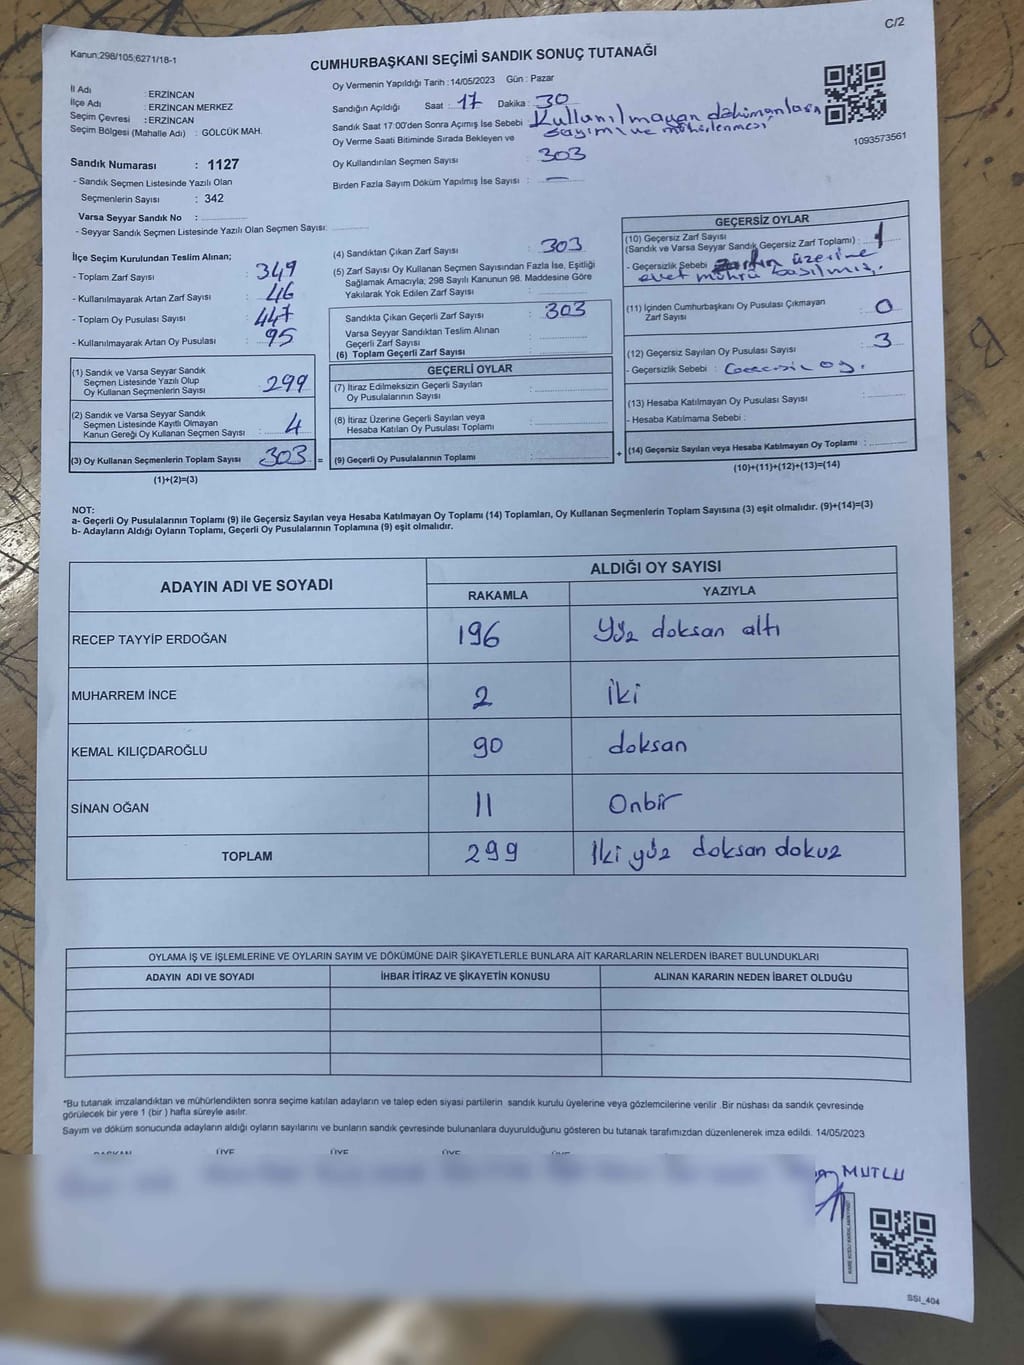 C/2
Kanun:298/105;6271/18-1
CUMHURBAŞKANI SEÇİMİ SANDIK SONUÇ TUTANAĞI
İl Adı : ERZİNCAN
İlçe Adı : ERZİNCAN MERKEZ
Seçim Çevresi : ERZİNCAN
Seçim Bölgesi (Mahalle Adı) : GÖLCÜK MAH.
Sandık Numarası : 1127
- Sandık Seçmen Listesinde Yazılı Olan
Seçmenlerin Sayısı : 342
Varsa Seyyar Sandık No :
- Seyyar Sandık Seçmen Listesinde Yazılı Olan Seçmen Sayısı:
Oy Vermenin Yapıldığı Tarih : 14/05/2023 Gün : Pazar
Sandığın Açıldığı Saat : 17 Dakika : 30
Sandık Saat 17:00'den Sonra Açımış İse Sebebi Kullanılmayan dökümanların
Oy Verme Saati Bitiminde Sırada Bekleyen ve sayımı ve mühürlenmesi
Oy Kullandırılan Seçmen Sayısı : 303
Birden Fazla Sayım Döküm Yapılmış İse Sayısı : —
1093573561
İlçe Seçim Kurulundan Teslim Alınan;
- Toplam Zarf Sayısı : 349
- Kullanılmayarak Artan Zarf Sayısı : 46
- Toplam Oy Pusulası Sayısı : 447
- Kullanılmayarak Artan Oy Pusulası : 95
(1) Sandık ve Varsa Seyyar Sandık
Seçmen Listesinde Yazılı Olup
Oy Kullanan Seçmenlerin Sayısı : 299
(2) Sandık ve Varsa Seyyar Sandık
Seçmen Listesinde Kayıtlı Olmayan
Kanun Gereği Oy Kullanan Seçmen Sayısı : 4
(3) Oy Kullanan Seçmenlerin Toplam Sayısı 303 =
(1)+(2)=(3)
(4) Sandıktan Çıkan Zarf Sayısı : 303
(5) Zarf Sayısı Oy Kullanan Seçmen Sayısından Fazla İse, Eşitliği
Sağlamak Amacıyla; 298 Sayılı Kanunun 98. Maddesine Göre
Yakılarak Yok Edilen Zarf Sayısı :
Sandıkta Çıkan Geçerli Zarf Sayısı : 303
Varsa Seyyar Sandıktan Teslim Alınan
Geçerli Zarf Sayısı :
(6) Toplam Geçerli Zarf Sayısı :
GEÇERLİ OYLAR
(7) İtiraz Edilmeksizin Geçerli Sayılan
Oy Pusulalarının Sayısı :
(8) İtiraz Üzerine Geçerli Sayılan veya
Hesaba Katılan Oy Pusulası Toplamı :
(9) Geçerli Oy Pusulalarının Toplamı : +
GEÇERSİZ OYLAR
(10) Geçersiz Zarf Sayısı
(Sandık ve Varsa Seyyar Sandık Geçersiz Zarf Toplamı) : 1
- Geçersizlik Sebebi üzerine
evet mührü basılmış.
(11) İçinden Cumhurbaşkanı Oy Pusulası Çıkmayan
Zarf Sayısı : 0
(12) Geçersiz Sayılan Oy Pusulası Sayısı : 3
- Geçersizlik Sebebi : oy.
(13) Hesaba Katılmayan Oy Pusulası Sayısı :
- Hesaba Katılmama Sebebi :
(14) Geçersiz Sayılan veya Hesaba Katılmayan Oy Toplamı :
(10)+(11)+(12)+(13)=(14)
NOT:
a- Geçerli Oy Pusulalarının Toplamı (9) ile Geçersiz Sayılan veya Hesaba Katılmayan Oy Toplamı (14) Toplamları, Oy Kullanan Seçmenlerin Toplam Sayısına (3) eşit olmalıdır. (9)+(14)=(3)
b- Adayların Aldığı Oyların Toplamı, Geçerli Oy Pusulalarının Toplamına (9) eşit olmalıdır.
ADAYIN ADI VE SOYADI ALDIĞI OY SAYISI
RAKAMLA YAZIYLA
RECEP TAYYİP ERDOĞAN 196 Yüz doksan altı
MUHARREM İNCE 2 İki
KEMAL KILIÇDAROĞLU 90 doksan
SİNAN OĞAN 11 Onbir
TOPLAM 299 İki yüz doksan dokuz
OYLAMA İŞ VE İŞLEMLERİNE VE OYLARIN SAYIM VE DÖKÜMÜNE DAİR ŞİKAYETLERLE BUNLARA AİT KARARLARIN NELERDEN İBARET BULUNDUKLARI
ADAYIN ADI VE SOYADI İHBAR İTİRAZ VE ŞİKAYETİN KONUSU ALINAN KARARIN NEDEN İBARET OLDUĞU
*Bu tutanak imzalandıktan ve mühürlendikten sonra seçime katılan adayların ve talep eden siyasi partilerin sandık kurulu üyelerine veya gözlemcilerine verilir .Bir nüshası da sandık çevresinde
görülecek bir yere 1 (bir ) hafta süreyle asılır.
Sayım ve döküm sonucunda adayların aldığı oyların sayılarını ve bunların sandık çevresinde bulunanlara duyurulduğunu gösteren bu tutanak tarafımızdan düzenlenerek imza edildi. 14/05/2023
BAŞKAN ÜYE ÜYE ÜYE ÜYE
MUTLU
SSI_404